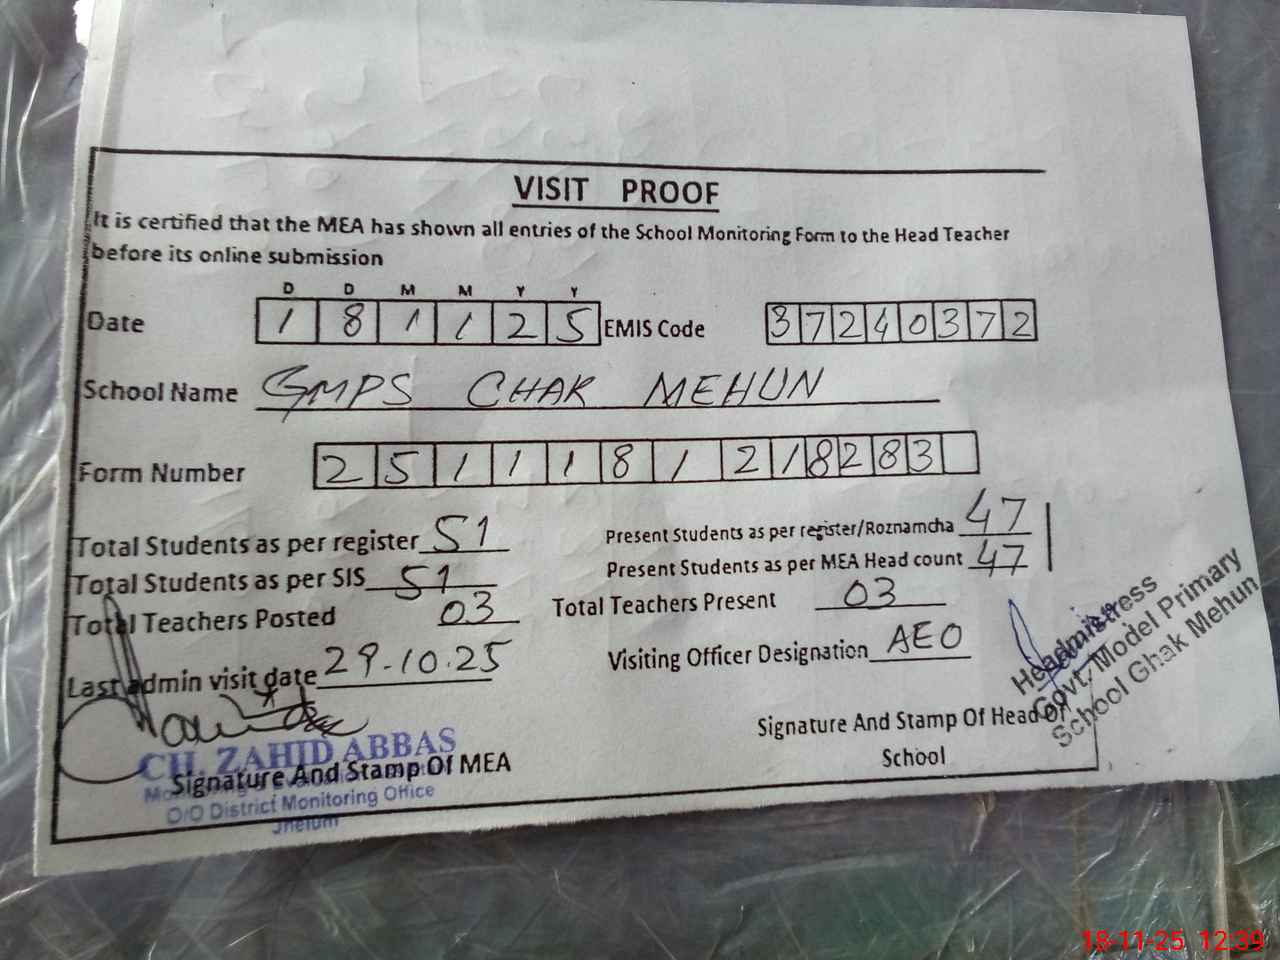 VISIT PROOF
It is certified that the MEA has shown all entries of the School Monitoring Form to the Head Teacher
before its online submission
D D M M Y Y
Date 1 8 1 1 2 5 EMIS Code 3 7 2 4 0 3 7 2
School Name GMPS CHAK MEHUN
Form Number 2 5 1 1 1 8 1 2 1 8 2 8 3
Total Students as per register 51 Present Students as per register/Roznamcha 47
Total Students as per SIS 51 Present Students as per MEA Head count 47
Total Teachers Posted 03 Total Teachers Present 03
Last admin visit date 29-10.25 Visiting Officer Designation AEO
Headmistress
Govt. Model Primary
School Chak Mehun
Signature And Stamp Of Head Of
School
CH. ZAHID ABBAS
Signature And Stamp Of MEA
O/O District Monitoring Office
Jhelum
18-11-25 12:39